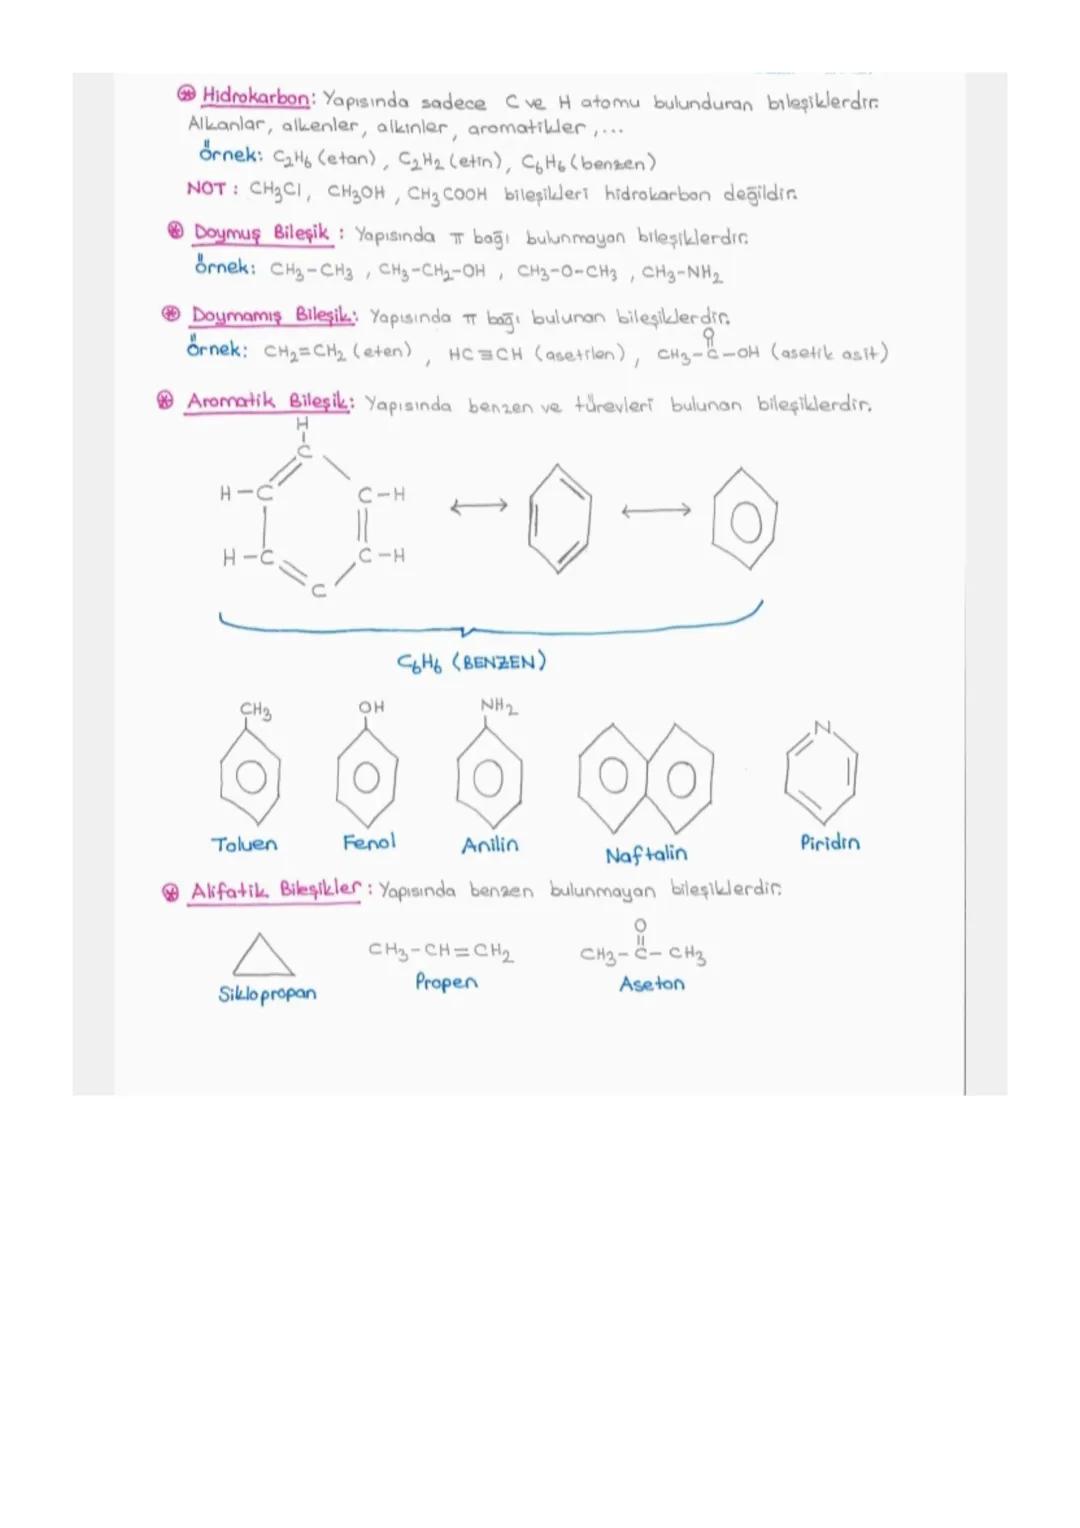 Hidrokarbon: Yapısında sadece C ve H atomu bulunduran bileşiklerdir.
Alkanlar, alkenler, alkinler, aromatikler,...
Örnek: C₂H₆ (etan), C₂H₂ (etin), C₆H₆ (benzen)
NOT: CH₃Cl, CH₃OH, CH₃COOH bileşikleri hidrokarbon değildir.
Doymuş Bileşik: Yapısında π bağı bulunmayan bileşiklerdir.
Örnek: CH₃-CH₃, CH₃-CH₂-OH, CH₃-O-CH₃, CH₃-NH₂
Doymamış Bileşik: Yapısında π bağı bulunan bileşiklerdir.
O
Örnek: CH₂=CH₂ (eten), HC≡CH (asetilen), CH₃-C-OH (asetik asit)
Aromatik Bileşik: Yapısında benzen ve türevleri bulunan bileşiklerdir.
H
C
H-C C-H
H-C C-H
C
C₆H₆ (BENZEN)
CH₃ OH NH₂
N
Toluen Fenol Anilin Naftalin Piridin
Alifatik Bileşikler: Yapısında benzen bulunmayan bileşiklerdir.
O
CH₃-CH=CH₂ CH₃-C-CH₃
Siklopropan Propen Aseton